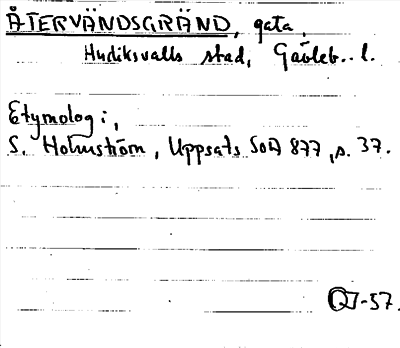 ÅTERVÄNDSGRÄND, gata,
Hudiksvalls stad, Gävleb.. l.
Etymologi,
S. Holmström, Uppsats SoA 877, s. 37.